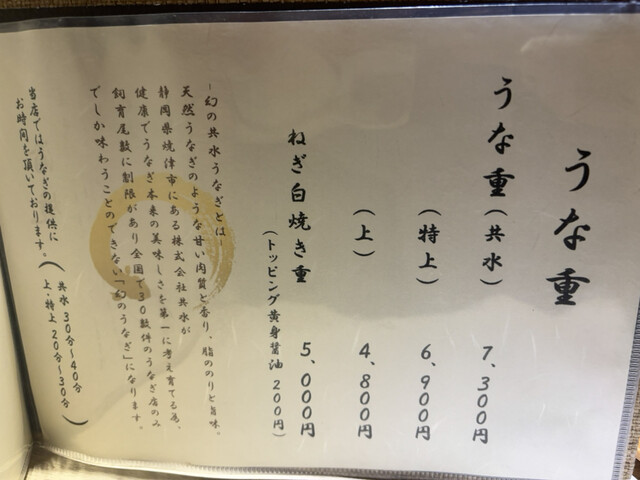 うな重
うな重(共水) 7,300円
(特上) 6,900円
(上) 4,800円
ねぎ白焼き重 5,000円
(トッピング黄身醤油 200円)
-幻の共水うなぎとは-
天然うなぎのような甘い肉質と香り、脂ののりと旨味。
静岡県焼津市にある株式会社共水が
健康でうなぎ本来の美味しさを第一に考え育てる為、
飼育尾数に制限があり全国で30数件のうなぎ店のみ
でしか味わうことのできない「幻のうなぎ」になります。
当店ではうなぎの提供に
お時間を頂いております。
(共水 30分〜40分
上・特上 20分〜30分)